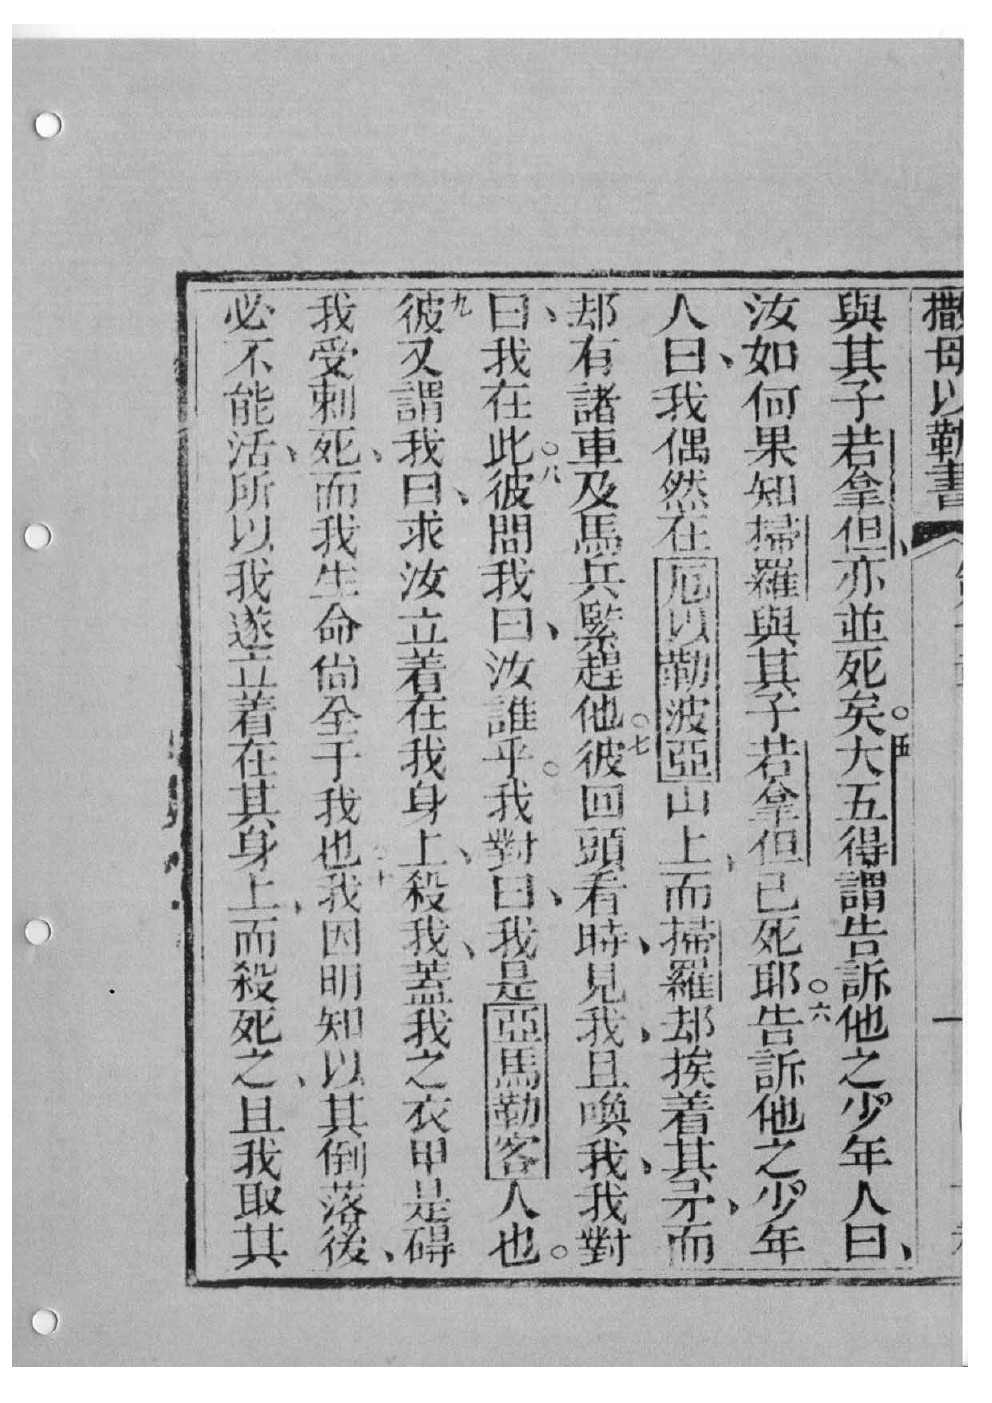 撒母以勒書
與其子若拿但、亦並死矣。五大五得謂告訴他之少年人曰、
汝如何果知掃羅與其子若拿但已死耶。六告訴他之少年
人曰、我偶然在厄以勒波亞山上、而掃羅却挨着其矛、而
却有諸車及馬兵緊趕他。七彼回頭看時、見我、且喚我、我對
曰、我在此。八彼問我曰、汝誰乎。我對曰、我是亞馬勒客人也。
九彼又謂我曰、求汝立着在我身上、殺我、蓋我之衣甲是碍
我受刺死、而我生命尚全于我也。十我因明知以其倒落後、
必不能活、所以我遂立着在其身上、而殺死之、且我取其